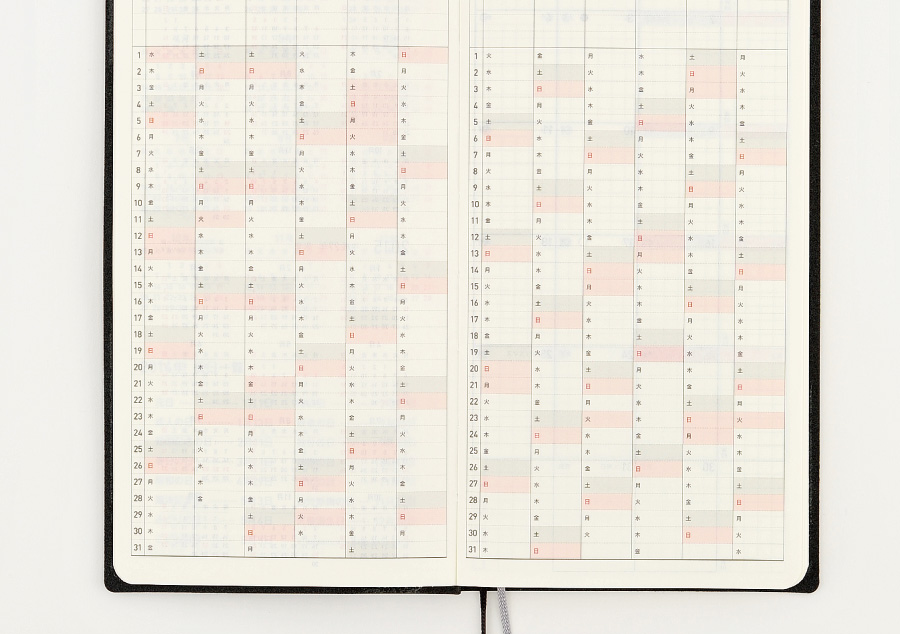 1 水 土 土 火 木 日
2 木 日 日 水 金 月
3 金 月 月 木 土 火
4 土 火 火 金 日 水
5 日 水 水 土 月 木
6 月 木 木 日 火 金
7 火 金 金 月 水 土
8 水 土 土 火 木 日
9 木 日 日 水 金 月
10 金 月 月 木 土 火
11 土 火 火 金 日 水
12 日 水 水 土 月 木
13 月 木 木 日 火 金
14 火 金 金 月 水 土
15 水 土 土 火 木 日
16 木 日 日 水 金 月
17 金 月 月 木 土 火
18 土 火 火 金 日 水
19 日 水 水 土 月 木
20 月 木 木 日 火 金
21 火 金 金 月 水 土
22 水 土 土 火 木 日
23 木 日 日 水 金 月
24 金 月 月 木 土 火
25 土 火 火 金 日 水
26 日 水 水 土 月 木
27 月 木 木 日 火 金
28 火 金 金 月 水 土
29 水 土 火 木 日
30 木 日 水 金 月
31 金 月 土
1 火 金 月 水 土 月
2 水 土 火 木 日 火
3 木 日 水 金 月 水
4 金 月 木 土 火 木
5 土 火 金 日 水 金
6 日 水 土 月 木 土
7 月 木 日 火 金 日
8 火 金 月 水 土 月
9 水 土 火 木 日 火
10 木 日 水 金 月 水
11 金 月 木 土 火 木
12 土 火 金 日 水 金
13 日 水 土 月 木 土
14 月 木 日 火 金 日
15 火 金 月 水 土 月
16 水 土 火 木 日 火
17 木 日 水 金 月 水
18 金 月 木 土 火 木
19 土 火 金 日 水 金
20 日 水 土 月 木 土
21 月 木 日 火 金 日
22 火 金 月 水 土 月
23 水 土 火 木 日 火
24 木 日 水 金 月 水
25 金 月 木 土 火 木
26 土 火 金 日 水 金
27 日 水 土 月 木 土
28 月 木 日 火 金 日
29 火 金 月 水 土 月
30 水 土 火 木 日 火
31 木 日 金 水